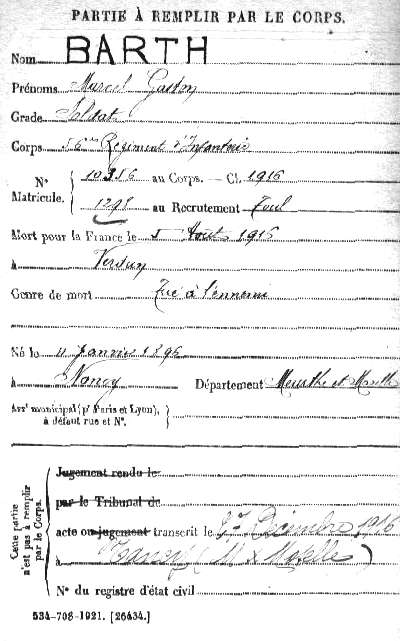 PARTIE À REMPLIR PAR LE CORPS.
Nom BARTH
Prénoms Marcel Gaston
Grade Soldat
Corps 56ème Régiment d'Infanterie
N° Matricule. { 10316 au Corps. — Cl. 1916
1298 au Recrutement Toul
Mort pour la France le Août 1916
à Verdun
Genre de mort Tué à l'ennemi
Né le 11 Janvier 1896
à Nancy Département Meurthe et Moselle
Arrt municipal (pr Paris et Lyon), à défaut rue et N°. }
Cette partie n'est pas à remplir par le Corps.
Jugement rendu le
par le Tribunal de
acte ou jugement transcrit le Décembre 1916
à Nancy (M & Moselle)
N° du registre d'état civil
534-708-1921. [26434.]